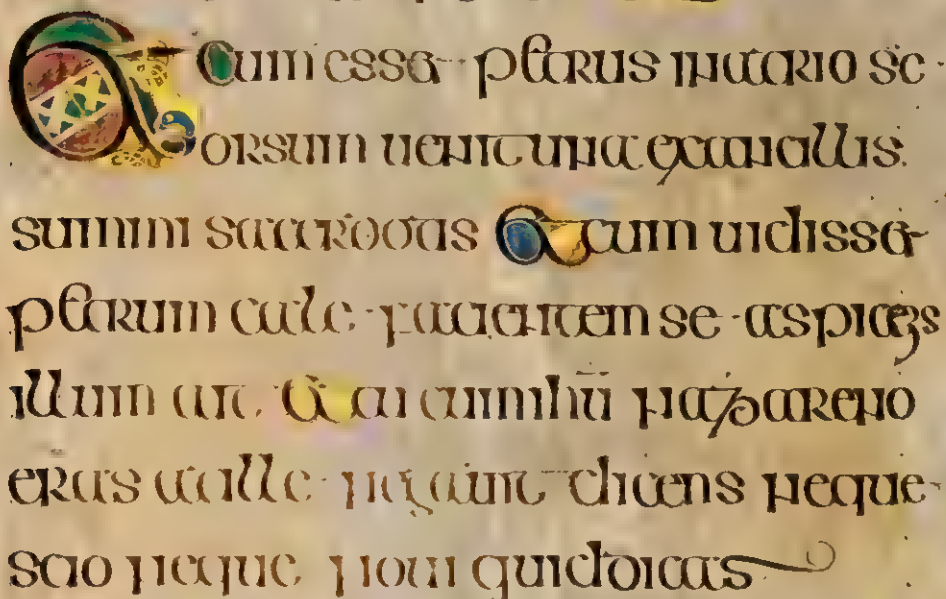 Et cum esset petrus in atrio se
orsum uenit una ex ancillis
summi sacerdotis Et cum uidisset
petrum cale facientem se aspiciens
illum ait Et tu cum ihū nazareno
eras at ille negauit dicens neque
scio neque noui quid dicas